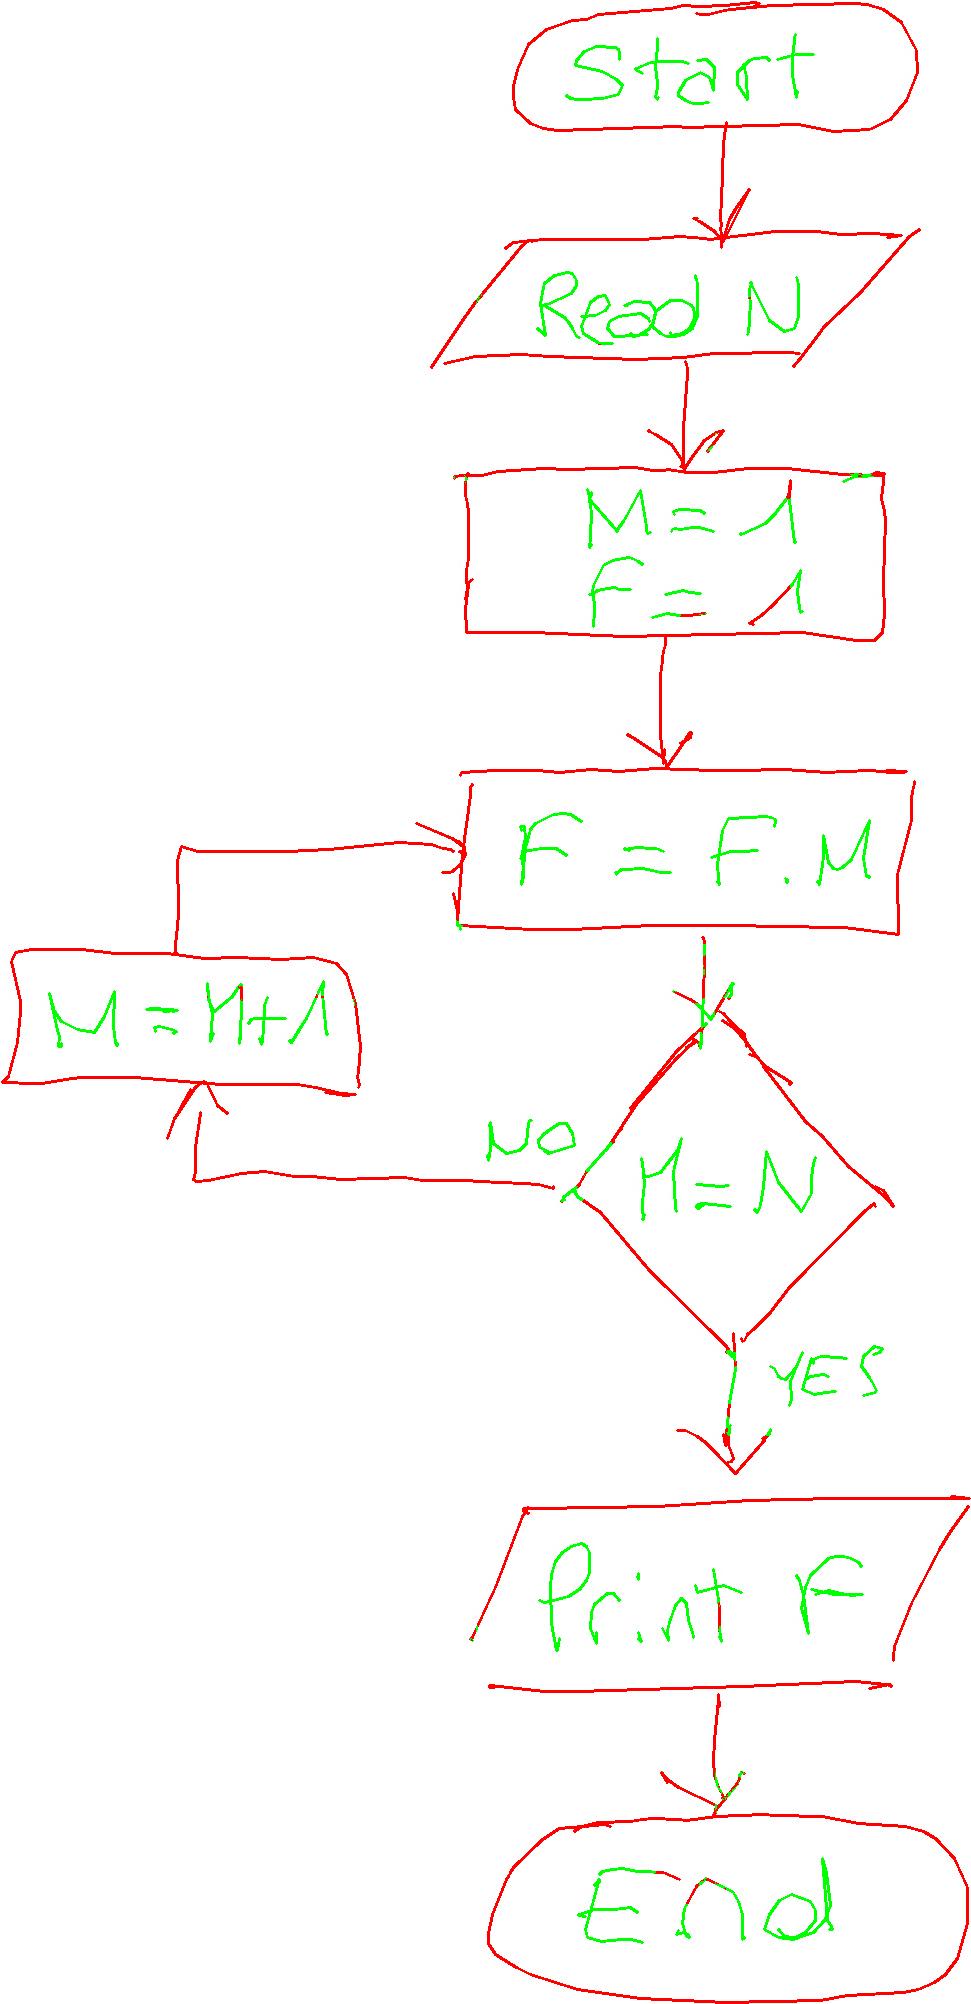 Start
Read N
M = 1
F = 1
F = F . M
M = M+1
NO
M = N
YES
Print F
End